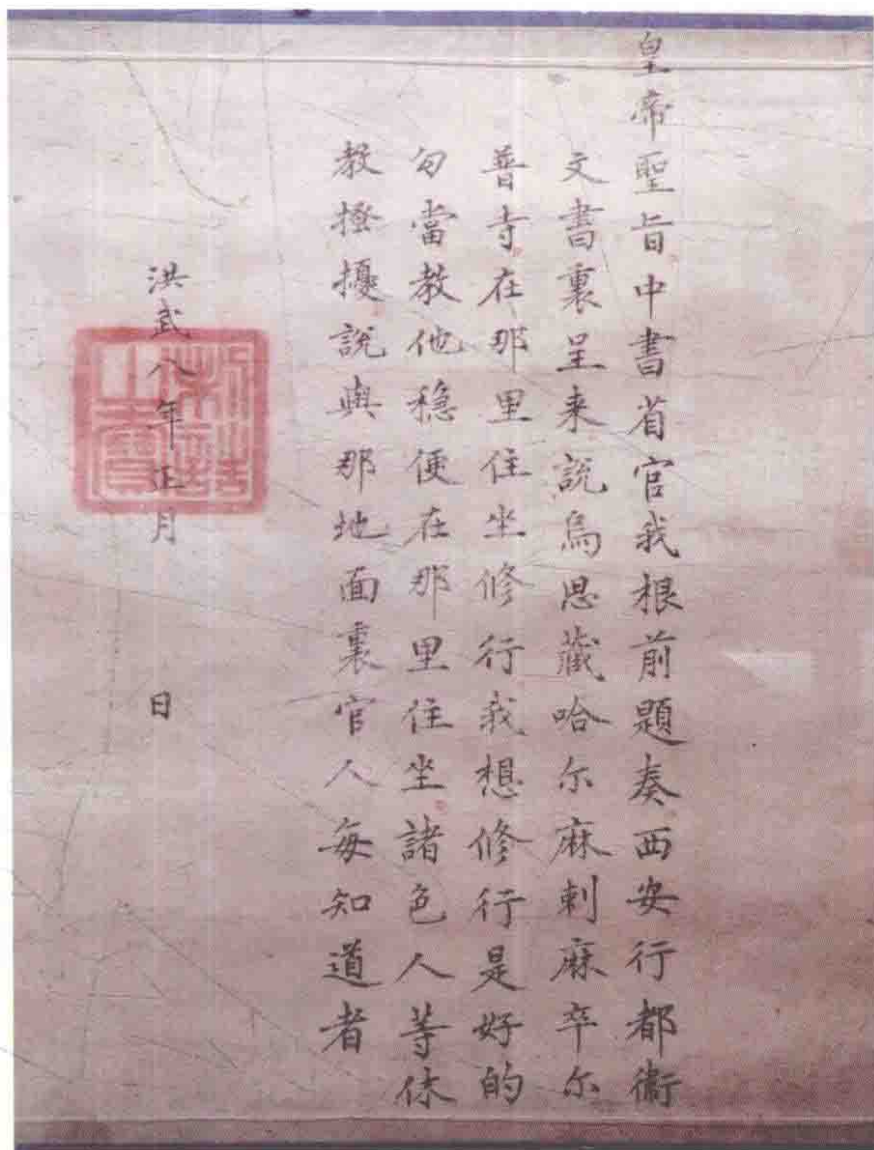 皇帝聖旨中書省官我根前題奏西安行都衛
文書裏呈来說烏思藏哈尔麻剌麻卒尔
普寺在那里住坐修行我想修行是好的
勾當教他穩便在那里住坐諸色人等休
教搔擾說與那地面裏官人每知道者
洪武八年正月 日